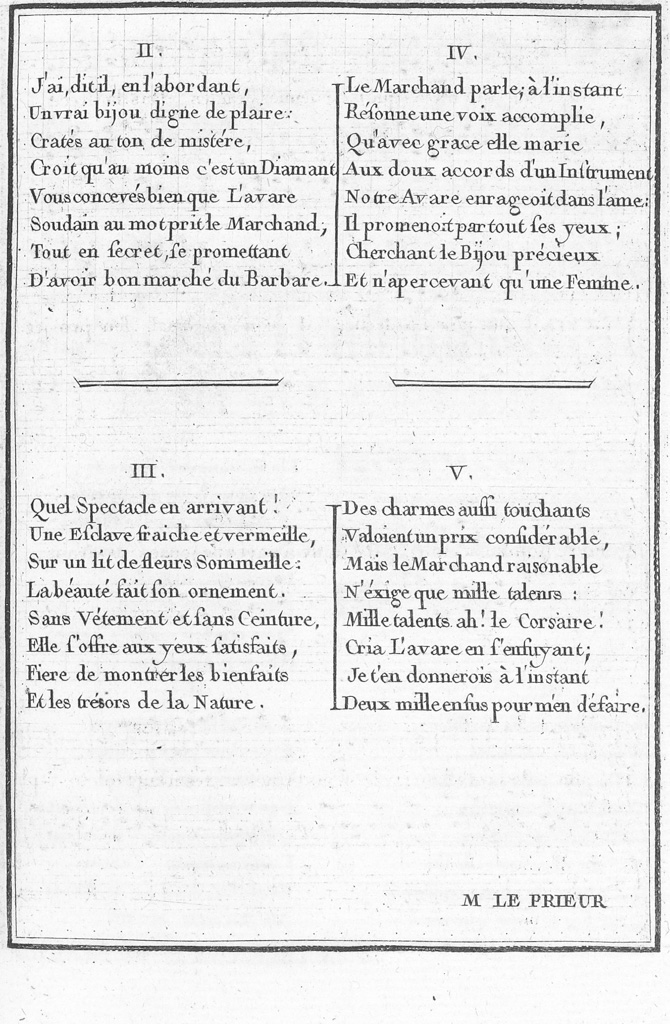 II.
J'ai, dit il, en l'abordant,
Un vrai bijou digne de plaire:
Cratés au ton de mistére,
Croit qu'au moins c'est un Diamant
Vous concevés bien que L'avare
Soudain au mot prit le Marchand,
Tout en ſecret, ſe promettant
D'avoir bon marché du Barbare.
III.
Quel Spectacle en arrivant!
Une Eſclave fraiche et vermeille,
Sur un lit de fleurs Sommeille:
La béauté fait ſon ornement.
Sans Vétement et ſans Ceinture,
Elle ſ'offre aux yeux ſatiſfaits,
Fiere de montrer les bienfaits
Et les trésors de la Nature.
IV.
Le Marchand parle; à l'inſtant
Réſonne une voix accomplie,
Qu'avec grace elle marie
Aux doux accords d'un Inſtrument
Notre Avare enrageoit dans l'ame:
Il promenoit par tout ſes yeux;
Cherchant le Bijou précieux
Et n'apercevant qu'une Femme.
V.
Des charmes auſſi touchants
Valoient un prix conſidérable,
Mais le Marchand raisonable
N'éxige que mille talens:
Mille talents ah! le Corsaire!
Cria L'avare en ſ'enfuyant;
Je t'en donnerois à l'inſtant
Deux mille en ſus pour m'en défaire.
M LE PRIEUR